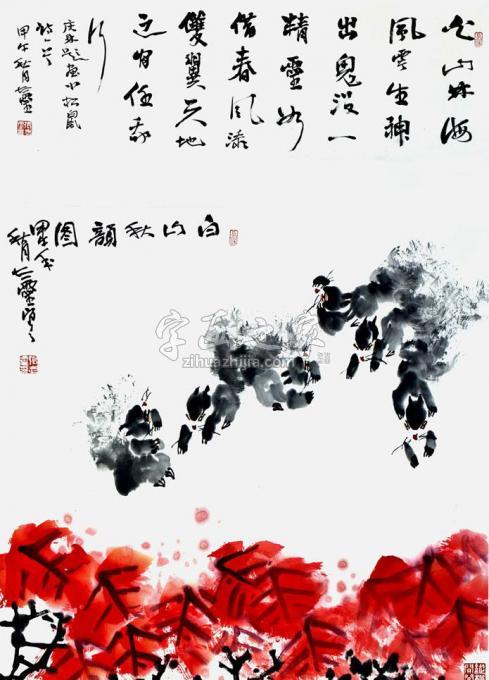 山林海
風雲生神
出鬼没一
精靈如
借春風添
雙翼天地
之間任我
行
題画小松鼠
詩一首
甲午秋月
白山秋韻圖
甲午
秋月
字画之家
zihuazhijia.com